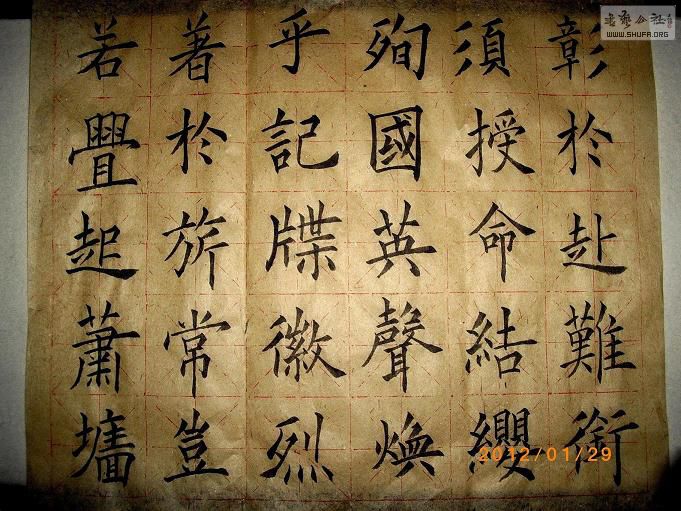 彰於赴難銜
須授命結纓
殉國英聲煥
乎記牒徽烈
著於旂常豈
若舋起蕭墻
书艺公社
WWW.SHUFA.ORG
2012/01/29